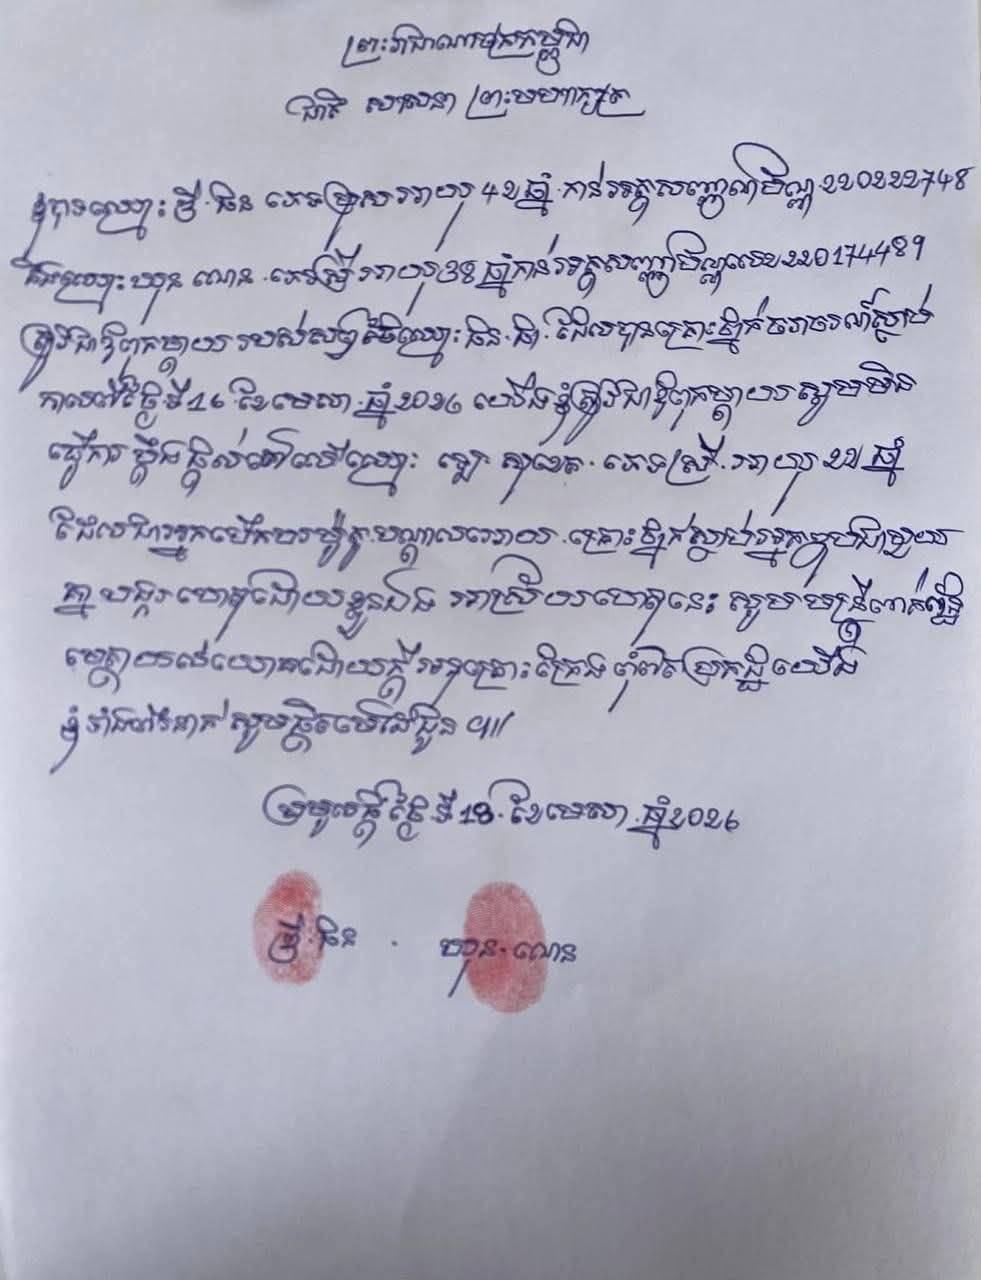 ព្រះរាជាណាចក្រកម្ពុជា
ជាតិ សាសនា ព្រះមហាក្សត្រ
ខ្ញុំបាទឈ្មោះ ទ្រី.ធិន ភេទប្រុស អាយុ 42 ឆ្នាំ.កាន់អត្តសញ្ញាណប័ណ្ណ.220222748
និងឈ្មោះ ឃុន ណេន.ភេទស្រី អាយុ 38 ឆ្នាំកាន់អត្តសញ្ញាប័ណ្ណលេខ 220174489
ត្រូវជាឪពុកម្តាយ របស់សពឈ្មោះ ធិន.ធិា. ដែលបានគ្រោះថ្នាក់ចរាចរណ៍ស្លាប់
កាលពីថ្ងៃទី 16.ខែមេសា.ឆ្នាំ 2026 យើងខ្ញុំត្រូវជាឪពុកម្តាយ សូមមិន
ធ្វើការប្តឹងផ្តល់ទៅលើឈ្មោះ ឡេះ សុខេត.ភេទស្រី.អាយុ 22 ឆ្នាំ
ដែលជាអ្នកបើកបរម៉ូតូ.បណ្តាលអោយ.គ្រោះថ្នាក់ស្លាប់អ្នករួមជាមួយ
គ្នា បង្ករហេតុដោយខ្លួនឯង អាស្រ័យហេតុនេះ សូមមន្ត្រីពាក់ព័ន្ធ
មេត្តាយល់យោគដោយក្តីអនុគ្រោះ គ្រែងពុំពិតប្រកដ្ឋ យើង
ខ្ញុំទាំងពីរនាក់ សូមផ្តិតមេដៃជូន ៕
ត្រមូលផ្តី ថ្ងៃទី 18.ខែមេសា.ឆ្នាំ 2026
ទ្រី.ធិន . ឃុន.ណេន